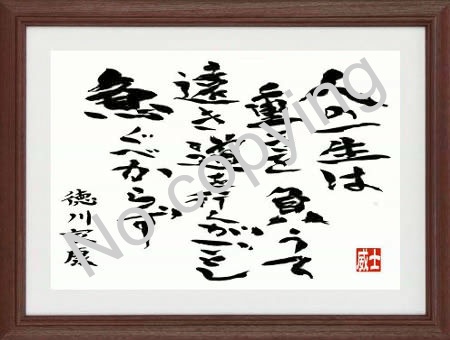 人の一生は
重荷を負うて
遠き道を行くがごとし
急ぐべからず
徳川家康
No copying